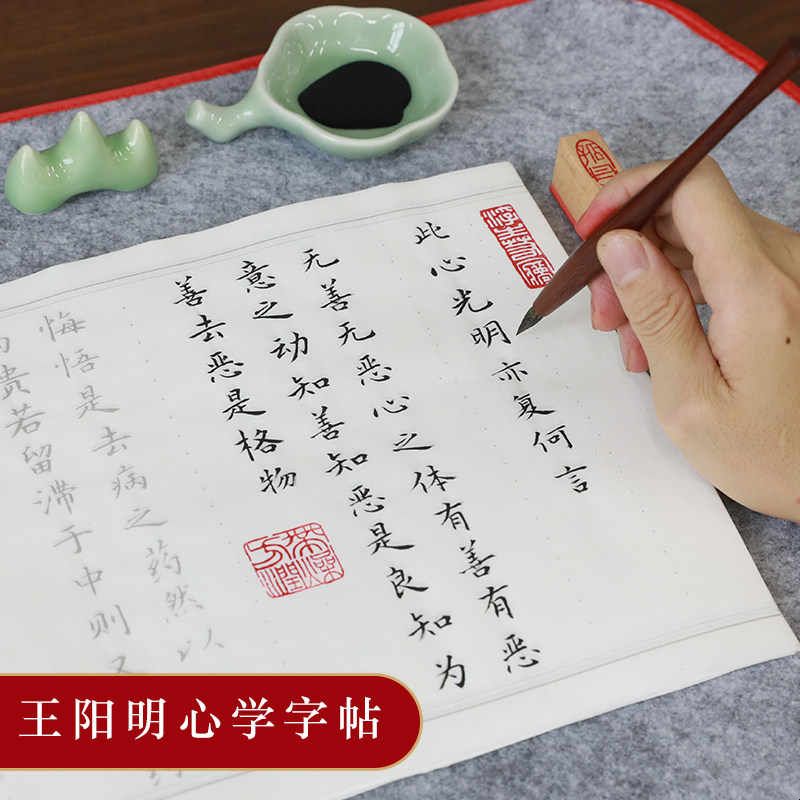 此心光明亦复何言
无善无恶心之体有善有恶
意之动知善知恶是良知为
善去恶是格物
悔悟是去病之药然以
貴若留滞于中则又
王阳明心学字帖